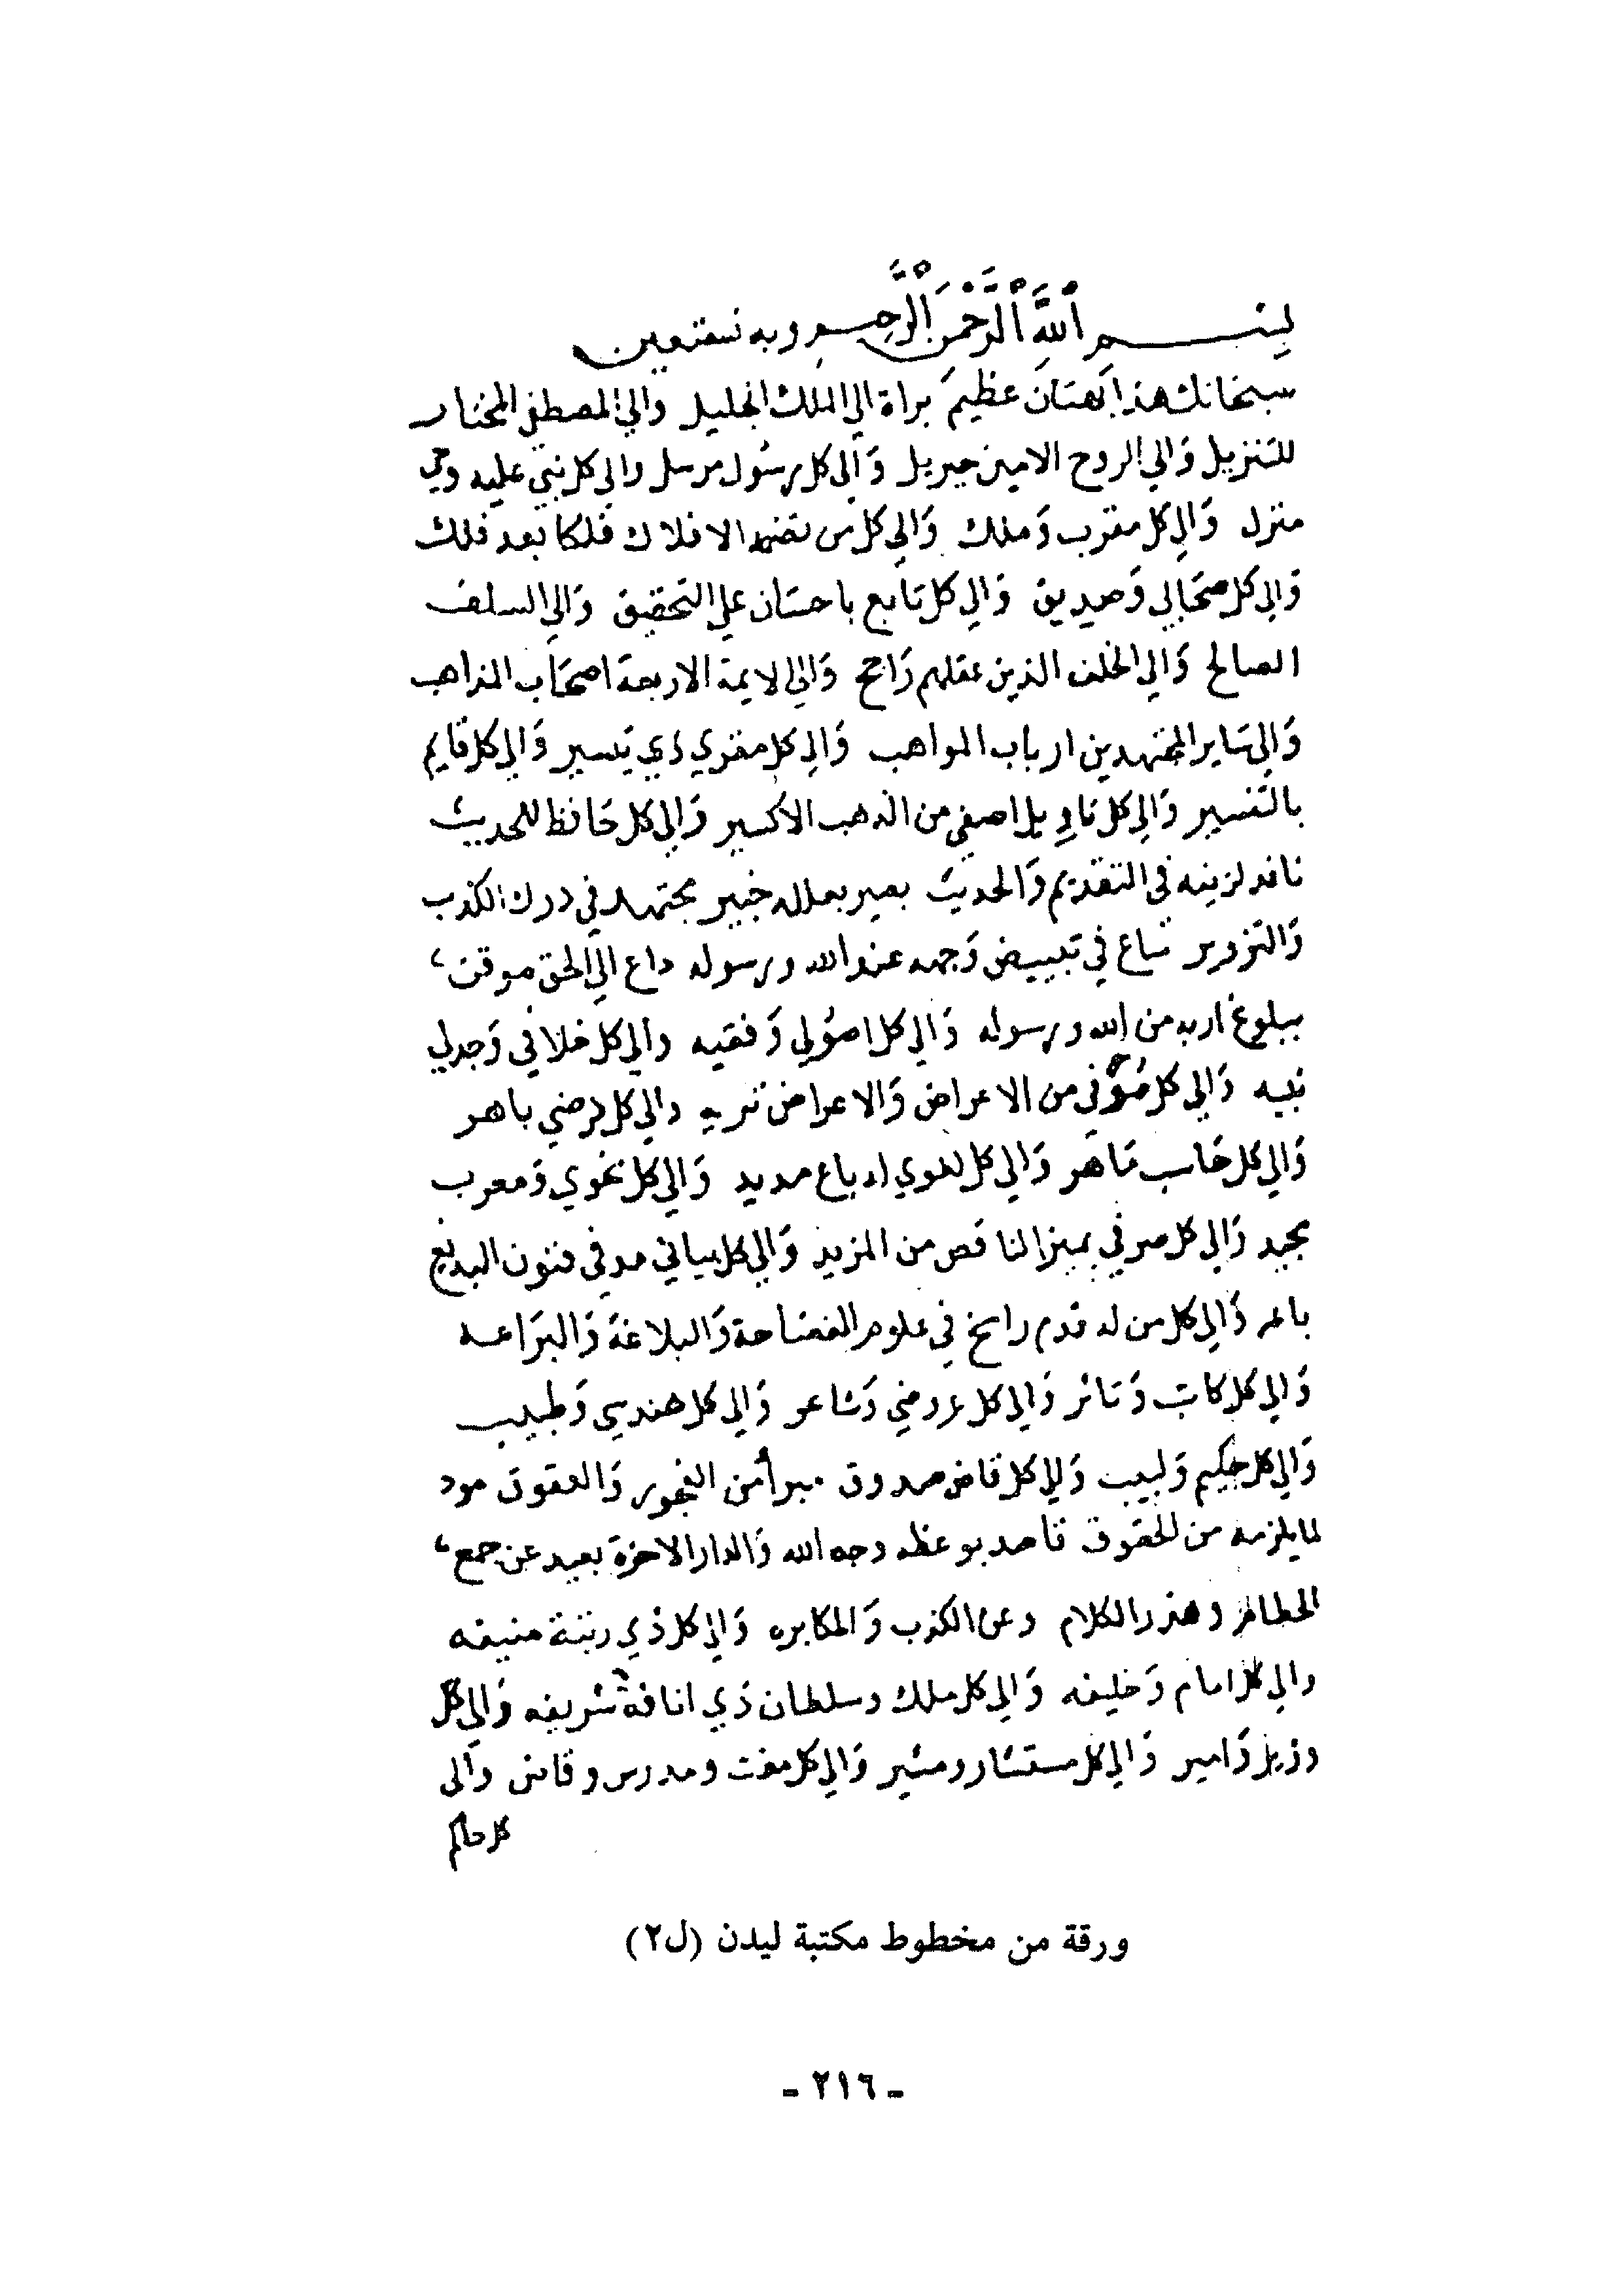 بسم اللَّه الرَّحمن الرَّحيم وبه نستعين
سبحانك هذا بهتان عظيم براة الي الملك الجليل والي المصطفي المختار
للتنزيل والي الروح الامين جبريل والي كل رسول مرسل والي كل نبي عليه وحي
منزل والي كل مقرب وملك والي كل من تضمه الافلاك فلكا بعد فلك
والي كل صحابي وصديق والي كل تابع باحسان علي التحقيق والي السلف
الصالح والي الخلف الذين عقلهم راجح والي الايمة الاربعة اصحاب المذاهب
والي ساير المجتهدين ارباب المواهب والي كل مقري ذي تيسير والي كل قايم
بالتفسير والي كل تاويل اصفي من الذهب الاكسير والي كل حافظ للحديث
ناقد لزينه في التقديم والحديث بصير بعلله خبير مجتهد في درك الكذب
والتزوير ساع في تبييض وجهه عند الله ورسوله داع الي الحق موقن
ببلوغ اربه من الله ورسوله والي كل اصولي وفقيه والي كل خلافي وجدلي
نبيه والي كل صوفي من الاعراض والاعراض نزيه والي كل فرضي باهر
والي كل حاسب ماهر والي كل لغوي له باع مديد والي كل نحوي ومعرب
مجيد والي كل صرفي يميز الناقص من المزيد والي كل بياني مد في فنون البديع
باعه والي كل من له قدم راسخ في علوم الفصاحة والبلاغة والبراعه
والي كل كاتب وناثر والي كل عروضي وشاعر والي كل هندسي وطبيب
والي كل حكيم ولبيب والي كل قاض صدوق مبرأ من الفجور والعقوق مود
لما يلزمه من الحقوق قاصد بوعظه وجه الله والدار الاخرة بعيد عن جمع
الحطام وهذر الكلام وعن الكذب والمكابره والي كل ذي رتبة منيفه
والي كل امام وخليفه والي كل ملك وسلطان ذي انافة شريفه والي كل
وزير وامير والي كل مستشار ومشير والي كل مفت ومدرس وقاض والي
كل حاكم
ورقة من مخطوط مكتبة ليدن (ل٢)
- ٢١٦ -